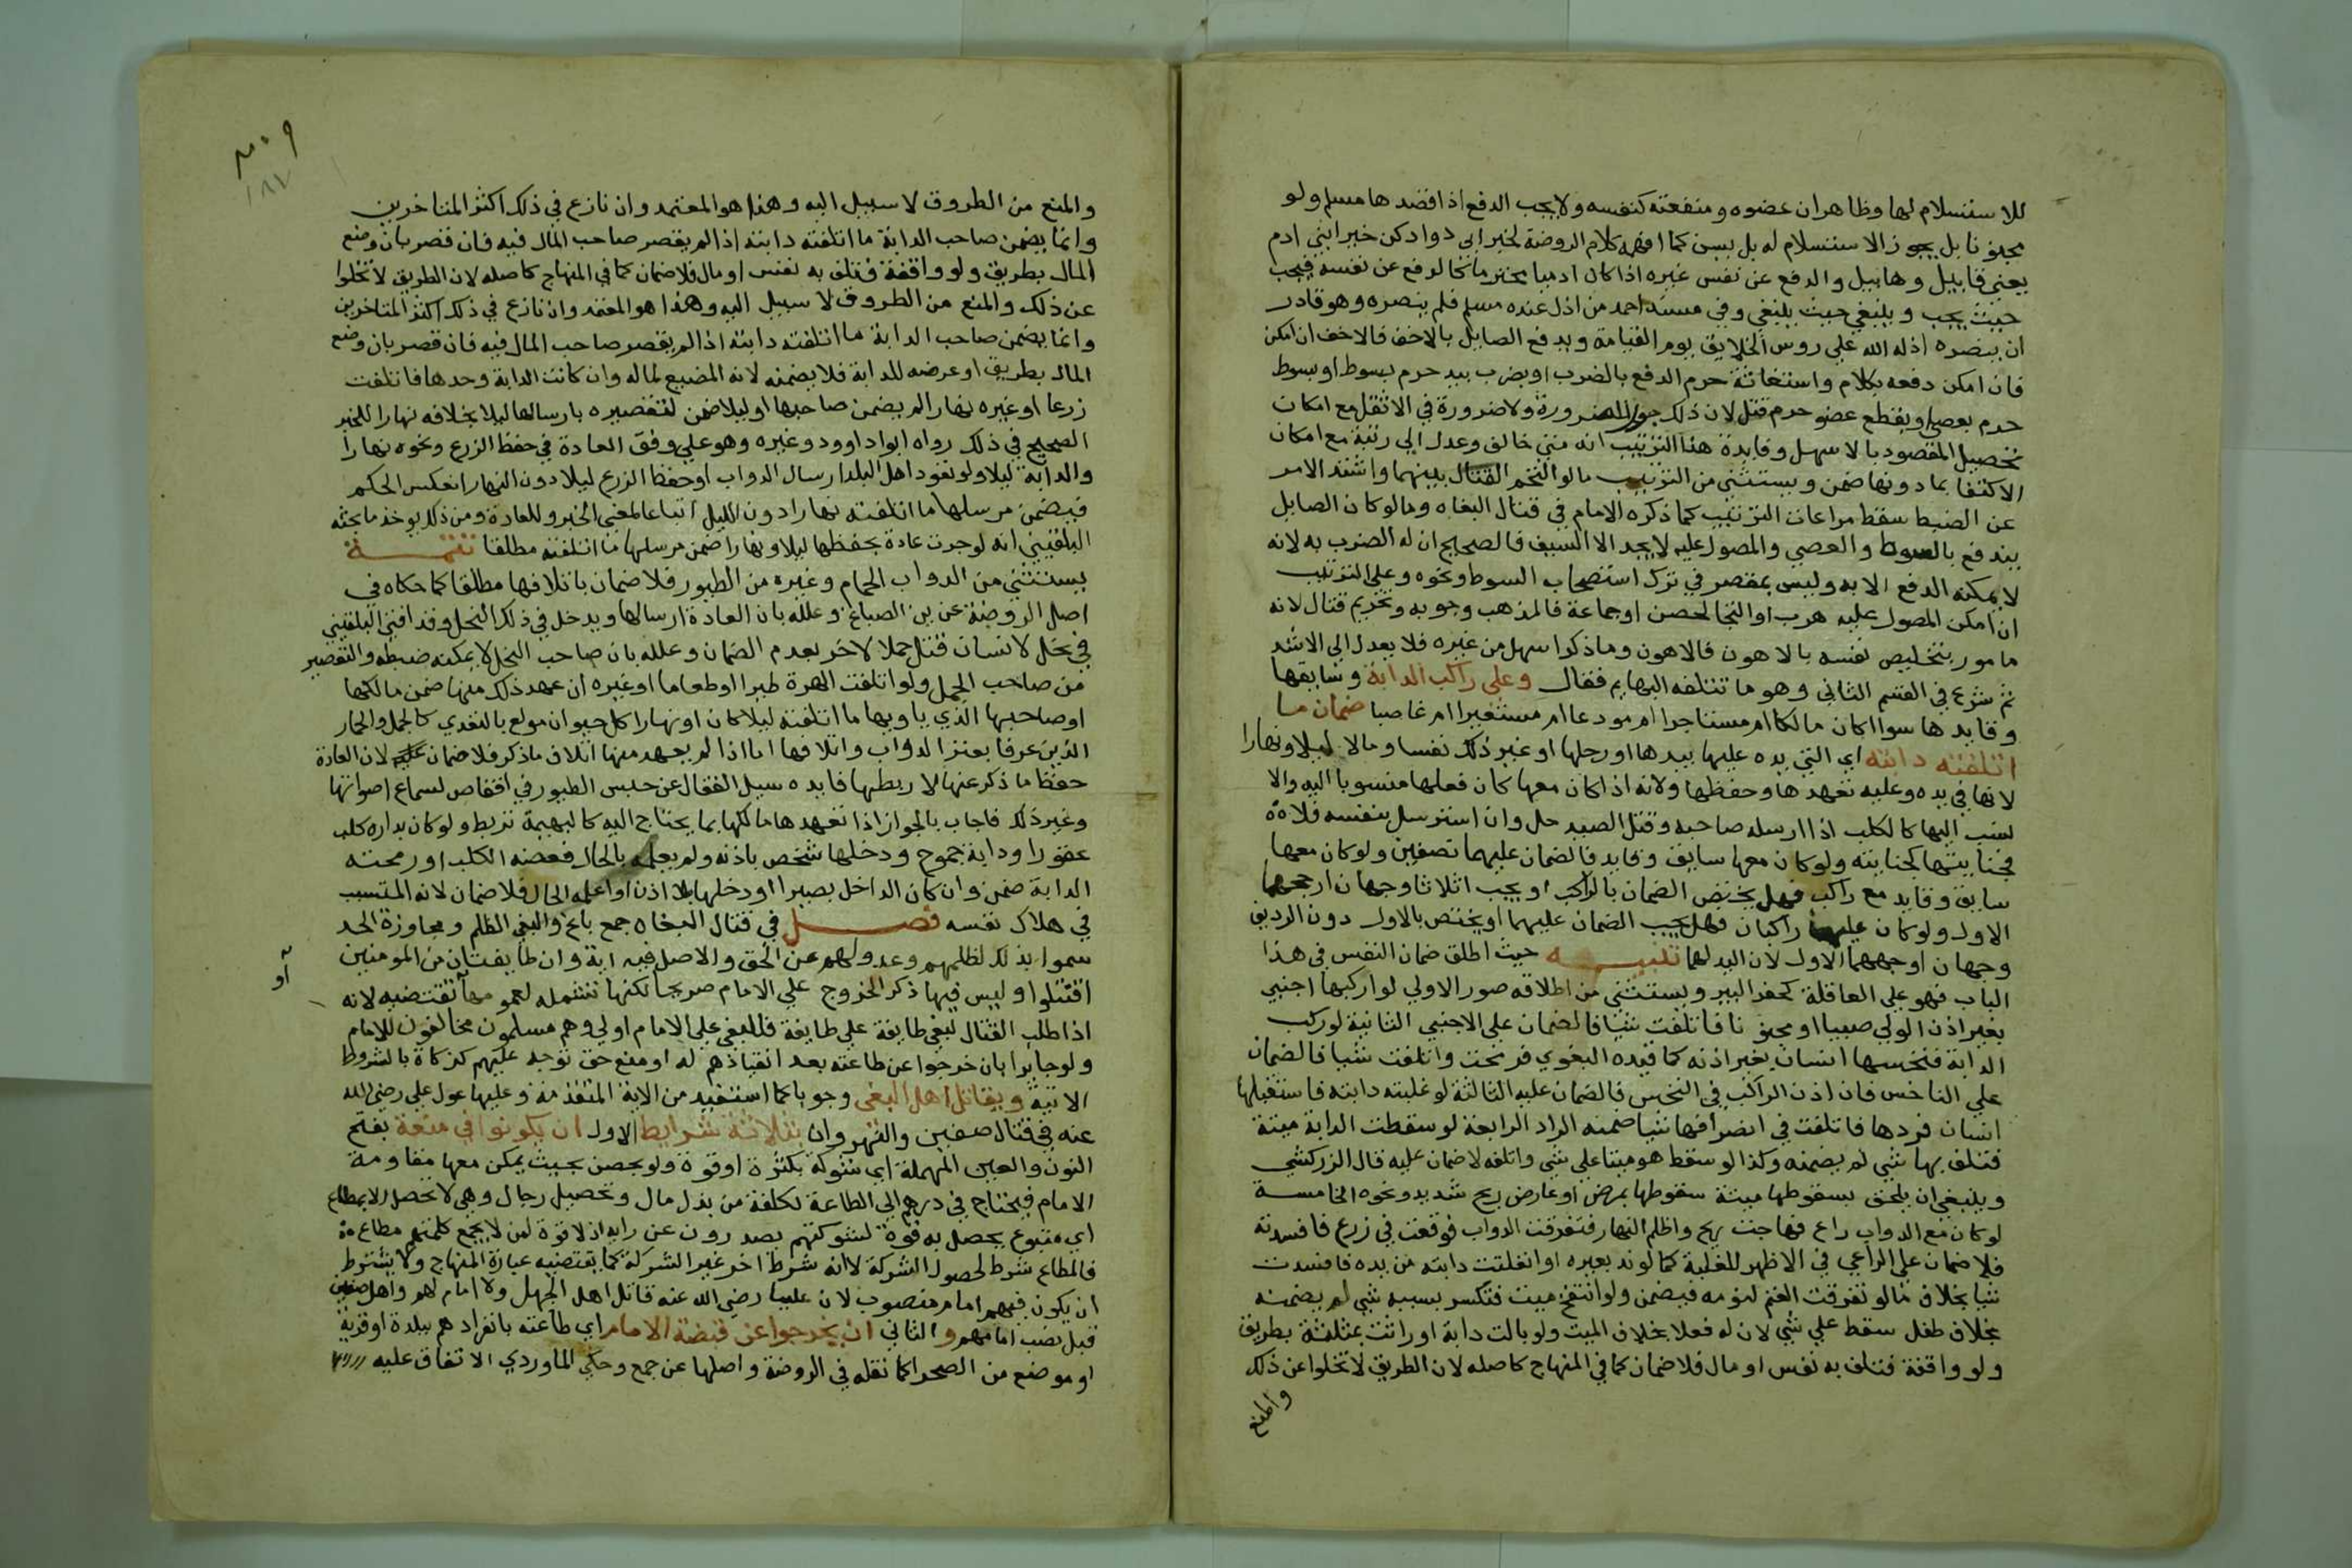 للاستسلام لها وظاهر ان عضوه ومنفعته كنفسه ولا يجب الدفع اذا قصدها مسلم ولو
مجنونا بل يجوز الاستسلام له بل يسن كما افهمه كلام الروضة لخبر ابي داود كن خير ابني ادم
يعني قابيل وهابيل والدفع عن نفس غيره اذا كان ادميا محترما كالدفع عن نفسه فيجب
حيث يجب وينتفي حيث ينتفي وفي مسند احمد من اذل عنده مسلم فلم ينصره وهو قادر
ان ينصره اذله الله علي روس الخلايق يوم القيامة ويدفع الصايل بالاخف فالاخف ان امكن
فان امكن دفعه بكلام واستغاثة حرم الدفع بالضرب او بضرب بيد حرم بسوط او بسوط
حرم بعصي او بقطع عضو حرم قتل لان ذلك جوز للضرورة ولا ضرورة في الاثقل مع امكان
تحصيل المقصود بالاسهل وفايدة هذا الترتيب انه متي خالف وعدل الي رتبة مع امكان
الاكتفا بما دونها ضمن ويستثني من الترتيب مالو التحم القتال بينهما واشتد الامر
عن الضبط سقط مراعات الترتيب كما ذكره الامام في قتال البغاه ومالو كان الصايل
يندفع بالسوط والعصي والمصول عليه لا يجد الا السيف فالصحيح ان له الضرب به لانه
لا يمكنه الدفع الا به وليس بمقصر في ترك استصحاب السوط ونحوه وعلي الترتيب
ان امكن المصول عليه هرب او التجا لحصن او جماعة فالمذهب وجوبه وتحريم قتال لانه
مامور بتخليص نفسه بالاهون فالاهون وما ذكر اسهل من غيره فلا يعدل الي الاشد
ثم شرع في القسم الثاني وهو ما تتلفه البهايم فقال وعلي راكب الدابة وسايقها
وقايدها سوا اكان مالكا ام مستاجرا ام مودعا ام مستعيرا ام غاصبا ضمان ما
اتلفته دابته اي التي يده عليها بيدها او رجلها او غير ذلك نفسا ومالا ليلا ونهارا
لانها في يده وعليه تعهدها وحفظها ولانه اذا كان معها كان فعلها منسوبا اليه والا
نسب اليها كالكلب اذا ارسله صاحبه وقتل الصيد حل وان استرسل بنفسه فلا
فجنايتها كجنايته ولو كان معها سايق وقايد فالضمان عليهما نصفين ولو كان معها
سايق وقايد مع راكب فهل يختص الضمان بالراكب او يجب اثلاثا وجهان ارجحهما
الاول ولو كان عليها راكبان فهل يجب الضمان عليهما او يختص بالاول دون الرديف
وجهان اوجههما الاول لان اليد لهما تنبيه حيث اطلق ضمان النفس في هذا
الباب فهو علي العاقلة كحفر البير ويستثني من اطلاقه صور الاولي لو اركبها اجنبي
بغير اذن الولي صبيا او مجنونا فاتلفت شيا فالضمان علي الاجنبي الثانية لو ركب
الدابة فنخسها انسان بغير اذنه كما قيده البغوي فرمحت واتلفت شيا فالضمان
علي الناخس فان اذن الراكب في النخس فالضمان عليه الثالثة لو غلبته دابته فاستقبلها
انسان فردها فاتلفت في انصرافها شيا ضمنه الراد الرابعة لو سقطت الدابة ميتة
فتلف بها شي لم يضمنه وكذا لو سقط هو ميتا علي شي واتلفه لا ضمان عليه قال الزركشي
وينبغي ان يلحق بسقوطها ميتة سقوطها بمرض او عارض ريح شديد ونحوه الخامسة
لو كان مع الدواب راع فهاجت ريح واظلم النهار فتفرقت الدواب فوقعت في زرع فافسدته
فلا ضمان علي الراعي في الاظهر للغلبة كما لو ند بعيره او انفلتت دابته من يده فافسدت
شيا بخلاف مالو تفرقت الغنم لنومه فيضمن ولو انتفخ ميت فتكسر بسببه شي لم يضمنه
بخلاف طفل سقط علي شي لان له فعلا بخلاف الميت ولو بالت دابة او راثت بمثلثة بطريق
ولو واقفة فتلف به نفس او مال فلا ضمان كما في المنهاج كاصله لان الطريق لا تخلوا عن ذلك
والمنع
والمنع من الطروق لا سبيل اليه وهذا هو المعتمد وان نازع في ذلك اكثر المتاخرين
وانما يضمن صاحب الدابة ما اتلفته دابته اذا لم يقصر صاحب المال فيه فان قصر بان وضع
المال بطريق ولو واقفة فتلف به نفس او مال فلا ضمان كما في المنهاج كاصله لان الطريق لا تخلوا
عن ذلك والمنع من الطروق لا سبيل اليه وهذا هو المعتمد وان نازع في ذلك اكثر المتاخرين
وانما يضمن صاحب الدابة ما اتلفته دابته اذا لم يقصر صاحب المال فيه فان قصر بان وضع
المال بطريق او عرضه للدابة فلا يضمنه لانه المضيع لماله وان كانت الدابة وحدها فاتلفت
زرعا او غيره نهارا لم يضمن صاحبها او ليلا ضمن لتقصيره بارسالها ليلا بخلافه نهارا للخبر
الصحيح في ذلك رواه ابوا داوود وغيره وهو علي وفق العادة في حفظ الزرع ونحوه نهارا
والدابة ليلا ولو تعود اهل البلد ارسال الدواب او حفظ الزرع ليلا دون النهار انعكس الحكم
فيضمن مرسلها ما اتلفته نهارا دون الليل اتباعا لمعني الخبر وللعادة ومن ذلك يوخذ ما بحثه
البلقيني انه لو جرت عادة بحفظها ليلا ونهارا ضمن مرسلها ما اتلفته مطلقا تتمة
يستثني من الدواب الحمام وغيره من الطيور فلا ضمان باتلافها مطلقا كما حكاه في
اصل الروضة عن بن الصباغ وعلله بان العادة ارسالها ويدخل في ذلك النحل وقد افتي البلقيني
في نحل لانسان قتل جملا لاخر بعدم الضمان وعلله بان صاحب النحل لا يمكنه ضبطه والتقصير
من صاحب الجمل ولو اتلفت الهرة طيرا او طعاما او غيره ان عهد ذلك منها ضمن مالكها
او صاحبها الذي ياويها ما اتلفته ليلا كان او نهارا كل حيوان مولع بالتعدي كالجمل والحمار
الذين عرفا بعقر الدواب واتلافها اما اذا لم يعهد منها اتلاف ما ذكر فلا ضمان لان العادة
حفظ ما ذكر عنها لا ربطها فايده سيل القفال عن حبس الطيور في اقفاص لسماع اصواتها
وغير ذلك فاجاب بالجواز اذا تعهدها مالكها بما يحتاج اليه كالبهيمة تربط ولو كان بداره كلب
عقورا ودابة جموح ودخلها شخص باذنه ولم يعلمه بالحال فعضه الكلب او رمحته
الدابة ضمن وان كان الداخل بصيرا او دخلها بلا اذن او اعلمه الحال فلا ضمان لانه المتسبب
في هلاك نفسه فصل في قتال البغاه جمع باغ والبغي الظلم ومجاوزة الحد
سموا بذلك لظلمهم وعدولهم عن الحق والاصل فيه اية وان طايفتان من المومنين
اقتتلوا وليس فيها ذكر الخروج علي الامام صريحا لكنها تشمله لعمومها او تقتضيه لانه
اذا طلب القتال لبغي طايفة علي طايفة فللبغي علي الامام اولي وهم مسلمون مخالفون للامام
ولو جايرا بان خرجوا عن طاعته بعد انقياذهم له او منع حق توجه عليهم كزكاة بالشروط
الاتية ويقاتل اهل البغي وجوبا كما استفيد من الاية المتقدمة وعليها عول علي رضي الله
عنه في قتال صفين والنهروان بثلاثة شرايط الاول ان يكونوا في منعة بفتح
النون والعين المهملة اي شوكة بكثرة او قوة ولو بحصن بحيث يمكن معها مقاومة
الامام فيحتاج في ردهم الي الطاعة لكلفة من بذل مال وتحصيل رجال وهي لا تحصل الا بمطاع
اي متبوع يحصل به قوة لشوكتهم يصدرون عن رايه اذ لا قوة لمن لا يجمع كلمتهم مطاع
فالمطاع شرط لحصول الشوكة لا انه شرط اخر غير الشركة كما يقتضيه عبارة المنهاج ولا يشترط
ان يكون فيهم امام منصوب لان عليا رضي الله عنه قاتل اهل الجهل ولا امام لهم واهل صفين
قبل نصب امامهم والثاني ان يخرجوا عن قبضة الامام اي طاعته بانفرادهم ببلدة او قرية
او موضع من الصحرا كما نقله في الروضة واصلها عن جمع وحكي الماوردي الاتفاق عليه